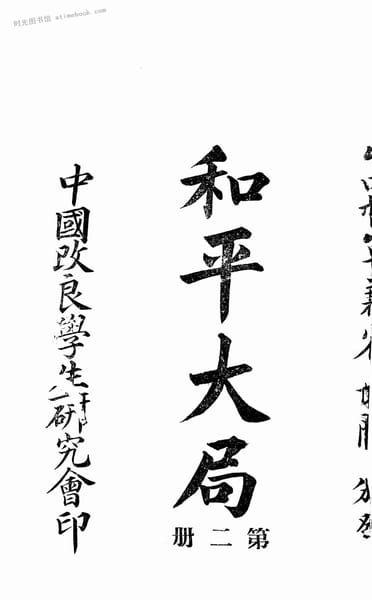 时光图书馆 atimebook.com
和平大局
第二册
中國改良學生研究會印